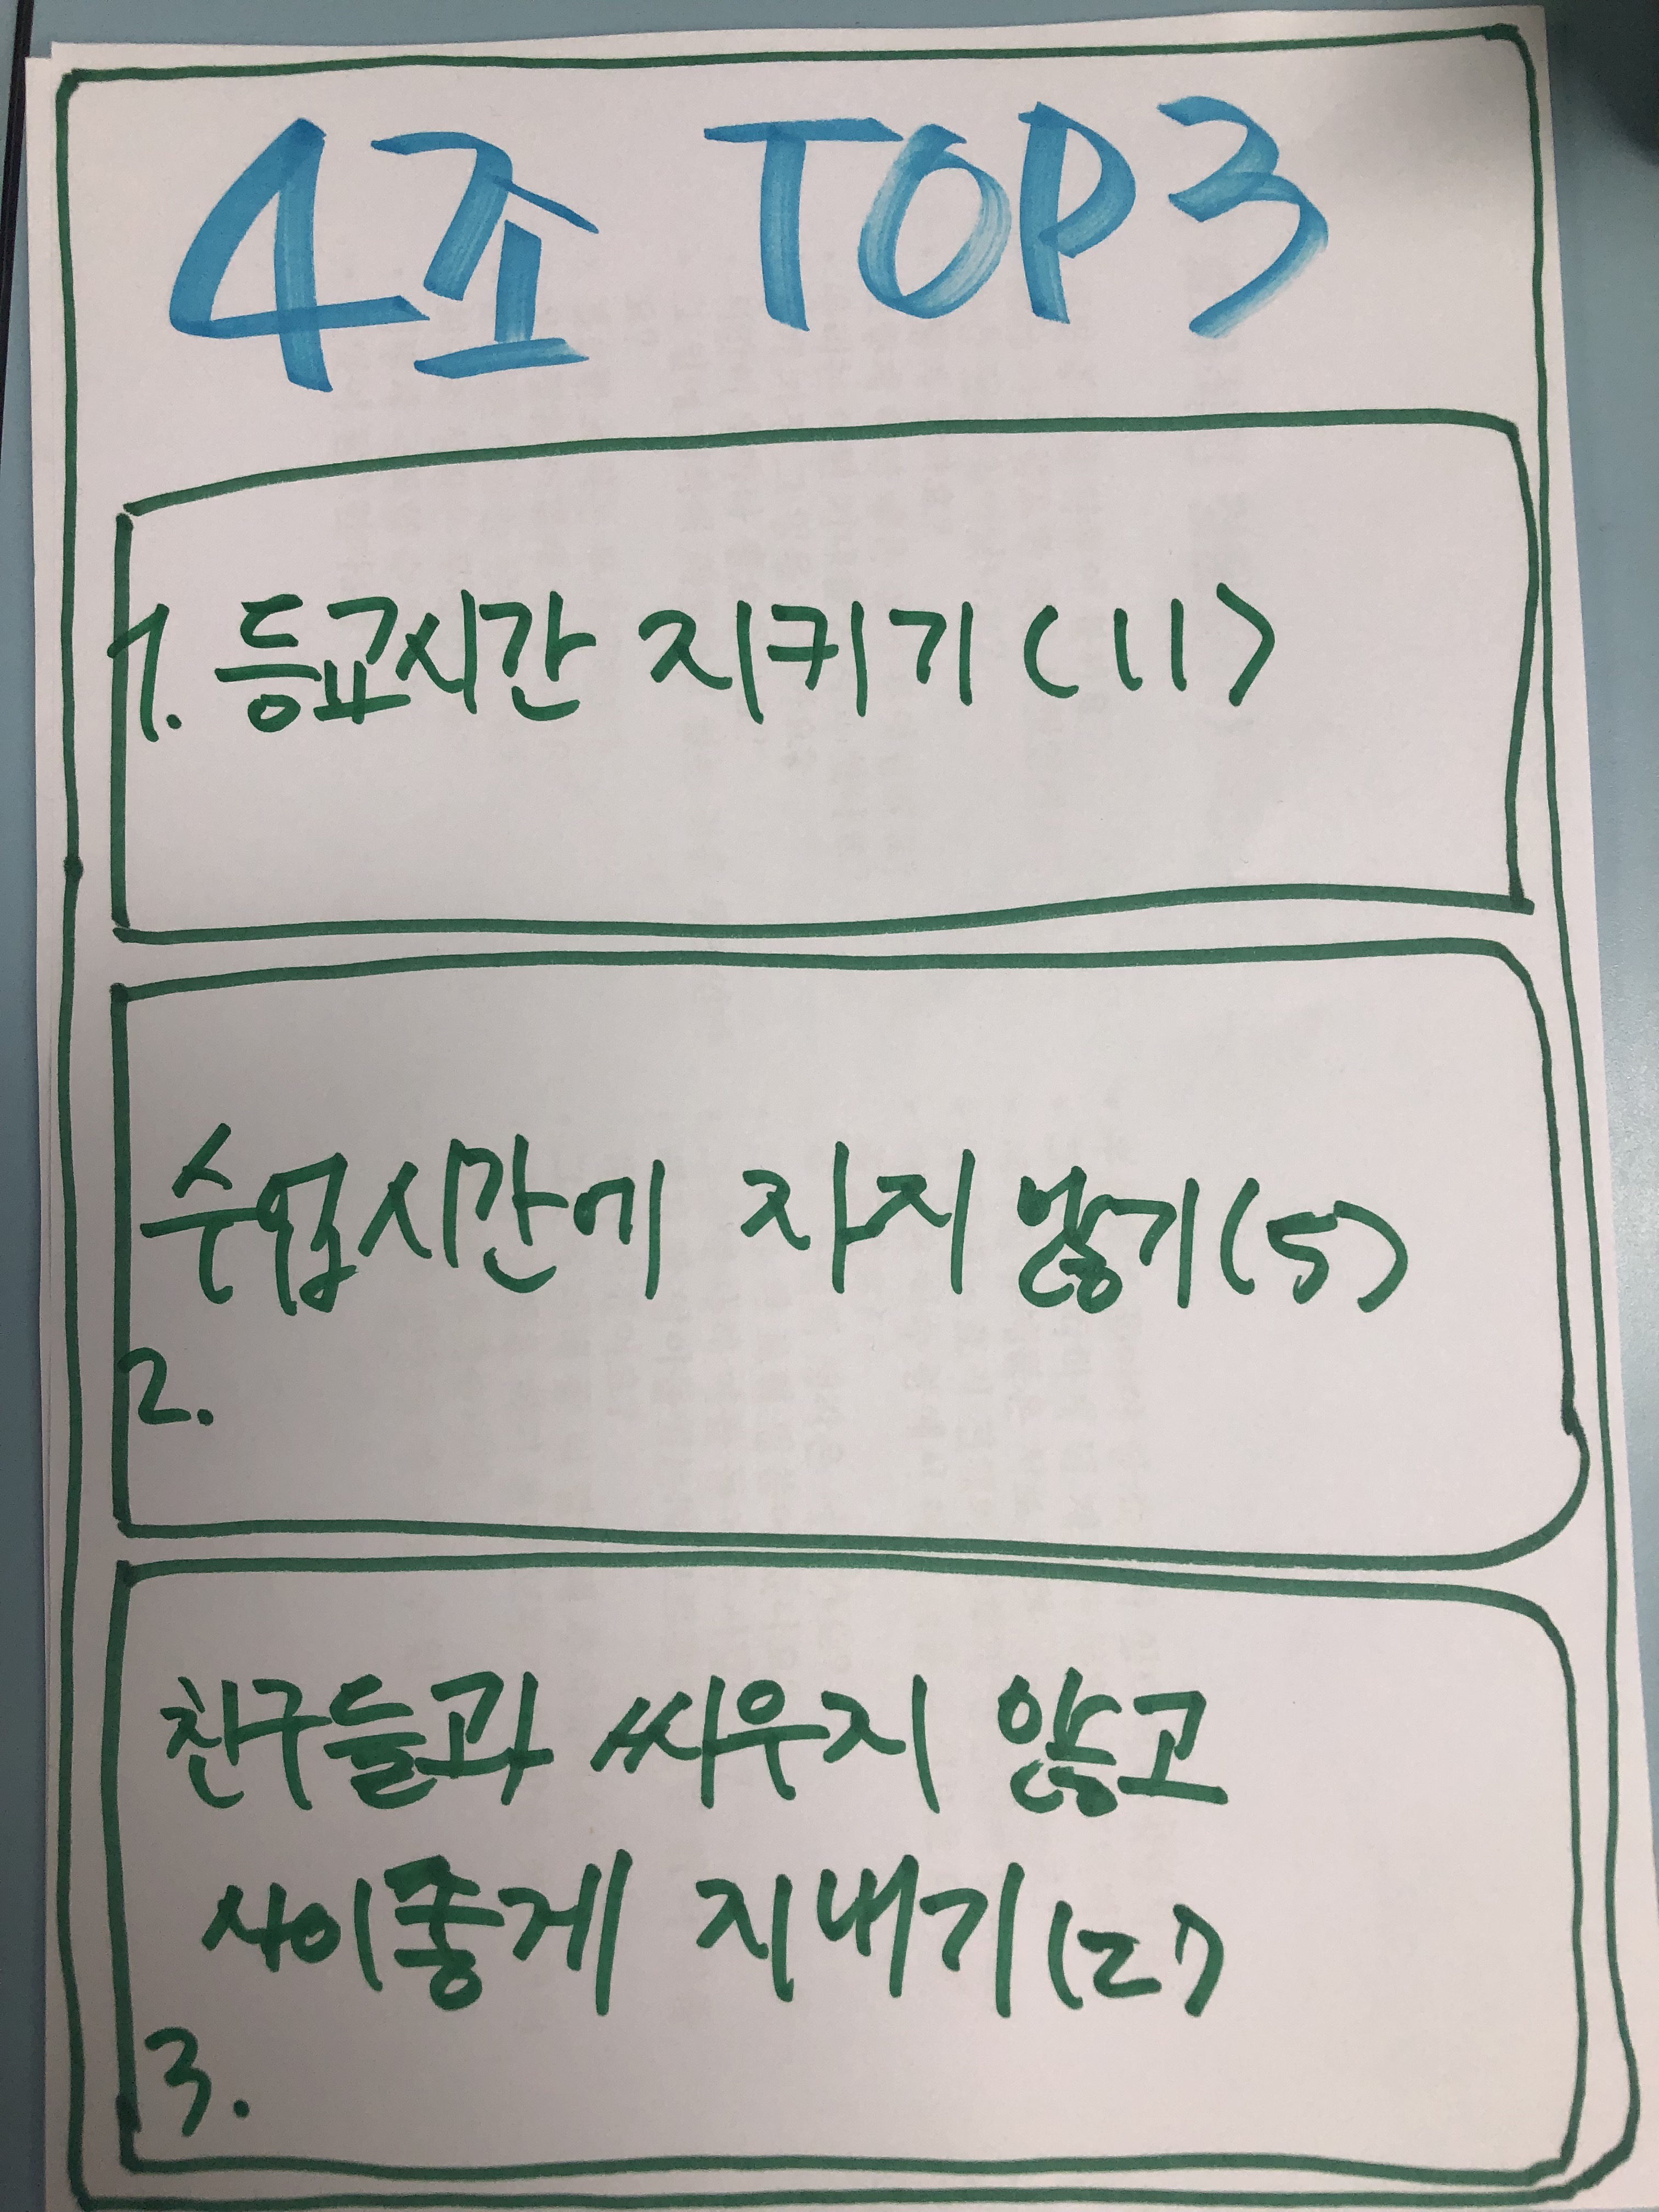 4조 TOP3
1. 등교시간 지키기 (11)
수업시간에 자지 않기(5)
2.
친구들과 싸우지 않고
사이좋게 지내기(2)
3.